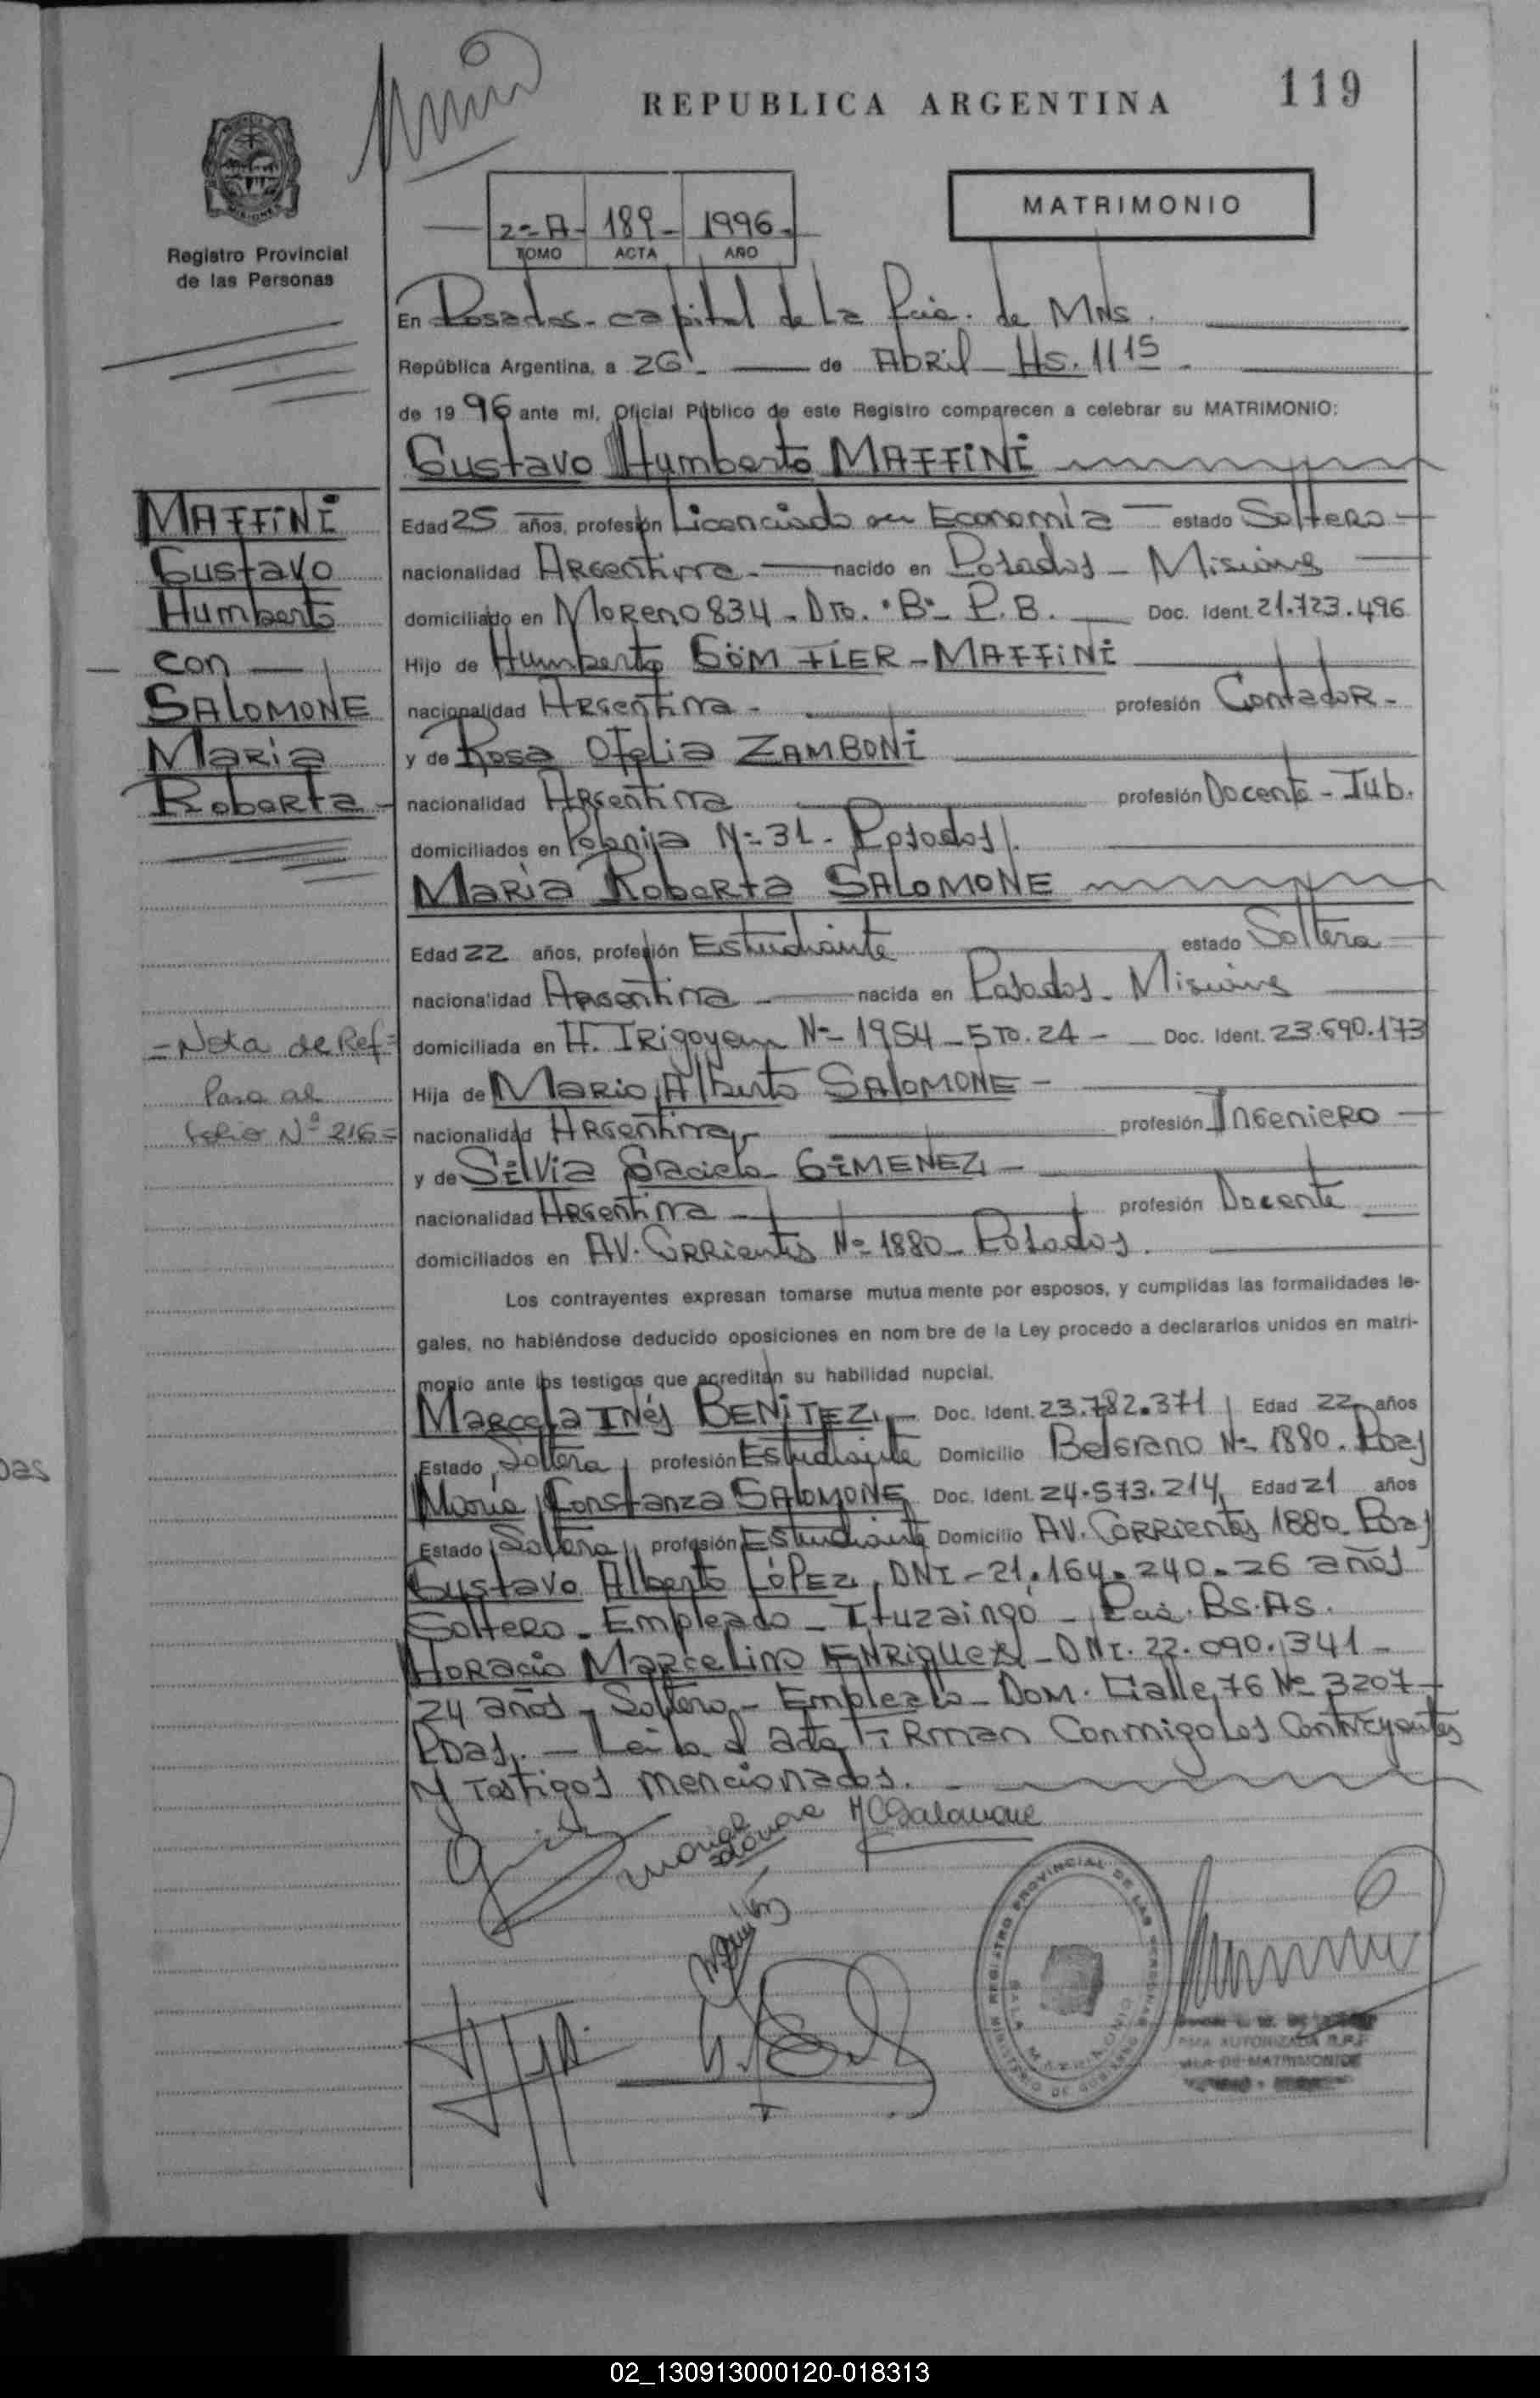 119
REPUBLICA ARGENTINA
MATRIMONIO
2=A- 189- 1996-
TOMO ACTA AÑO
Registro Provincial
de las Personas
En Posadas-capital de la Pcia. de Mns.
República Argentina, a 26.- de Abril - Hs. 11 15 -
de 1996 ante mi, Oficial Público de este Registro comparecen a celebrar su MATRIMONIO:
Gustavo Humberto MAFFINI
MAFFINI
Gustavo
Humberto
con
SALOMONE
Maria
Roberta-
Edad 25 años, profesión Licenciado en Economía estado Soltero
nacionalidad Argentina- nacido en Posadas - Misiones
domiciliado en Moreno 834- Dto. "B"- P.B. Doc. Ident. 21.723.496
Hijo de Humberto MAFFINI
nacionalidad Argentina- profesión Contador-
y de Rosa Ofelia ZAMBONI
nacionalidad Argentina profesión Docente - Jub.
domiciliados en Polonia N=31- Posadas.
Maria Roberta SALOMONE
Edad 22 años, profesión Estudiante estado Soltera
nacionalidad Argentina- nacida en Posadas- Misiones
domiciliada en H. IRigoyen N=1954-5to.24- Doc. Ident. 23.690.173
Hija de Mario Alberto SALOMONE-
nacionalidad Argentina- profesión Ingeniero
y de Silvia Graciela GIMENEZ-
nacionalidad Argentina- profesión Docente
domiciliados en AV. Corrientes N=1880- Posadas.
=Nota de Ref=
Pasa al
folio Nº 216=
Los contrayentes expresan tomarse mutua mente por esposos, y cumplidas las formalidades le-
gales, no habiéndose deducido oposiciones en nom bre de la Ley procedo a declararlos unidos en matri-
monio ante los testigos que acreditan su habilidad nupcial.
Marcela Inés BENITEZ,- Doc. Ident. 23.782.371 Edad 22 años
Estado Soltera profesión Estudiante Domicilio Belgrano N=1880. Pdas
María Constanza SALOMONE Doc. Ident. 24.573.214 Edad 21 años
Estado Soltera profesión Estudiante Domicilio AV. Corrientes 1880- Pdas
Gustavo Alberto LÓPEZ, DNI-21.164.240-26 años
Soltero- Empleado- Ituzaingó- Pcia. Bs.As.
Horacio Marcelino ENRIQUEZ-DNI.22.090.341-
24 años- Soltero- Empleado- Dom. Calle 76 Nº 3207-
Pdas,.- Leída el acta firman Conmigo los Contrayentes
y Testigos mencionados.-
MCSalomone
REGISTRO PROVINCIAL DE LAS PERSONAS
MINISTERIO DE GOBIERNO
SALA MATRIMONIO
AUTORIZADA R.P.P.
SALA DE MATRIMONIOS
02_130913000120-018313